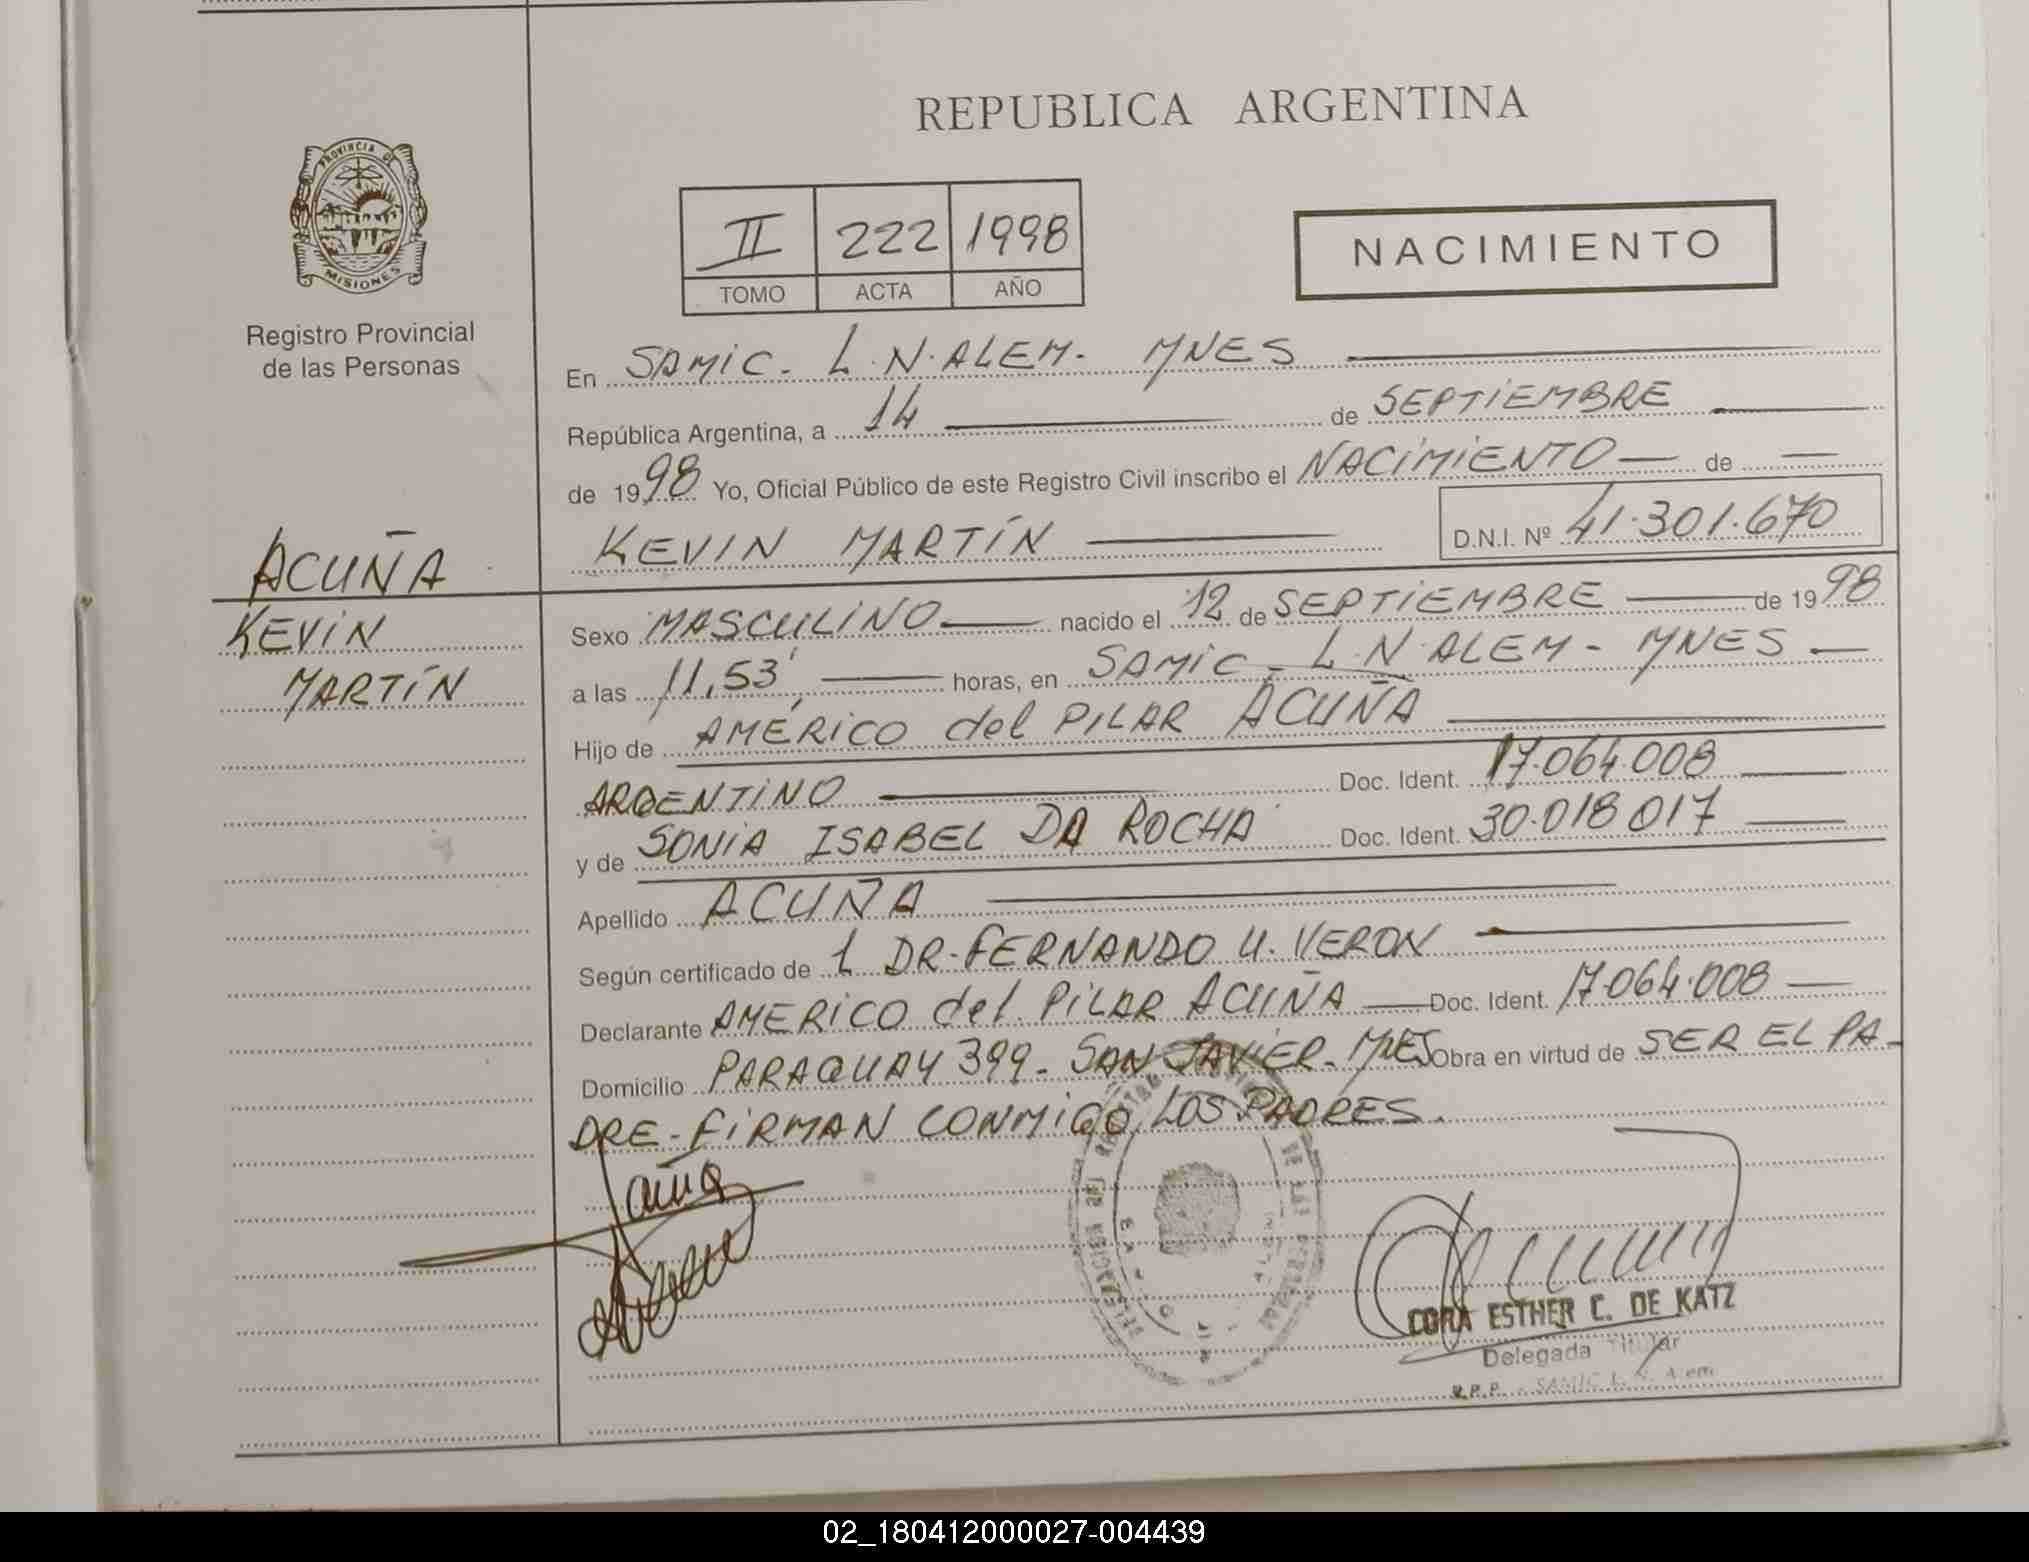 REPUBLICA ARGENTINA
PROVINCIA DE
MISIONES
Registro Provincial
de las Personas
II 222 1998
TOMO ACTA AÑO
NACIMIENTO
En SAMIC. L.N.ALEM. MNES
República Argentina, a 14 de SEPTIEMBRE
de 1998 Yo, Oficial Público de este Registro Civil inscribo el NACIMIENTO — de —
KEVIN MARTÍN D.N.I. Nº 41.301.670
ACUÑA
KEVIN
MARTÍN
Sexo MASCULINO nacido el 12 de SEPTIEMBRE de 1998
a las 11,53' horas, en SAMIC. L.N.ALEM - MNES
Hijo de AMÉRICO del PILAR ACUÑA
ARGENTINO Doc. Ident. 17.064.008
y de SONIA ISABEL DA ROCHA Doc. Ident. 30.018.017
Apellido ACUÑA
Según certificado de 1 DR. FERNANDO U. VERON
Declarante AMERICO del PILAR ACUÑA Doc. Ident. 17.064.008
Domicilio PARAGUAY 399 - SAN JAVIER - MNES Obra en virtud de SER EL PA-
DRE - FIRMAN CONMIGO LOS PADRES.
CORA ESTHER C. DE KATZ
Delegada Titular
R.P.P. - SAMIC L. N. Alem
02_180412000027-004439